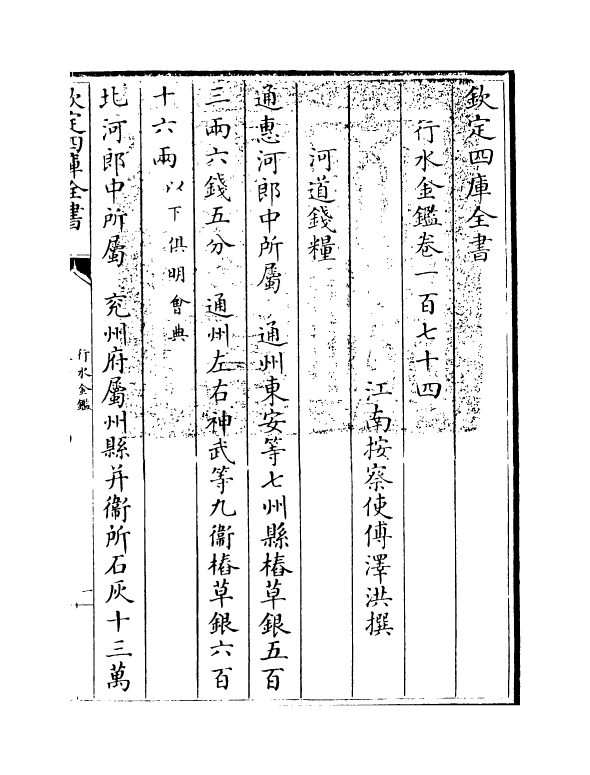 欽定四庫全書
行水金鑑卷一百七十四
江南按察使傅澤洪撰
河道錢糧
通惠河郎中所屬　通州東安等七州縣樁草銀五百
三兩六錢五分　通州左右神武等九衞樁草銀六百
十六兩以下俱明會典
北河郎中所屬　兖州府屬州縣并衞所石灰十三萬
欽定四庫全書
行水金鑑
一